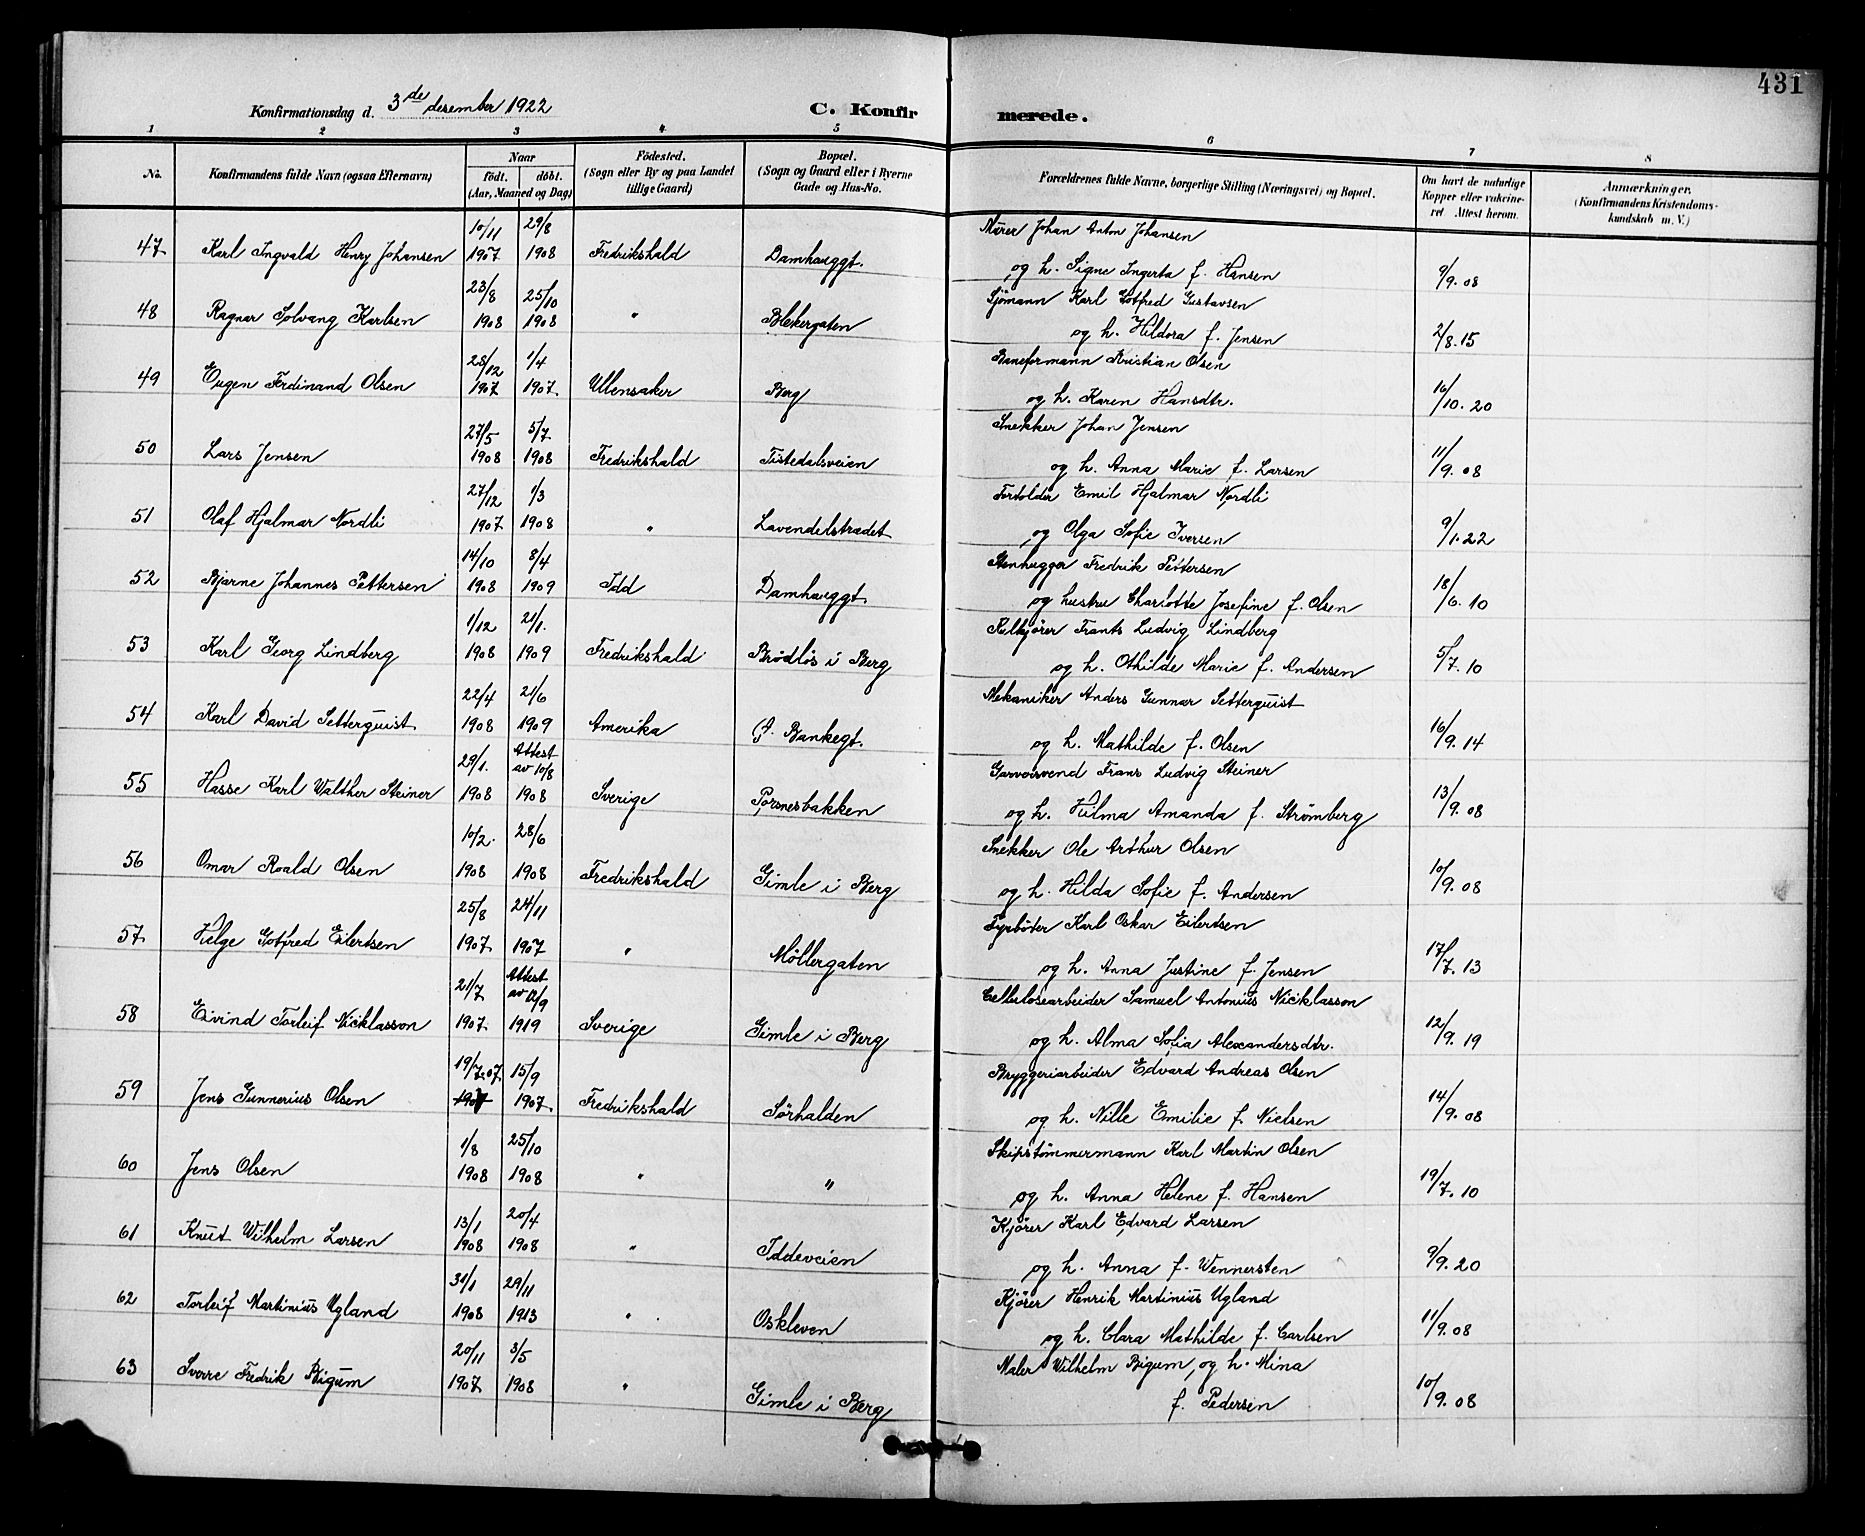 431
Konfirmationsdag d. 3de desember 1922 C. Konfirmerede.
1 2 3 4 5 6 7 8
No. Konfirmandens fulde Navn (ogsaa Efternavn) Naar født. døbt. (Aar, Maaned og Dag) Fødested. (Sogn eller By og paa Landet tillige Gaard) Bopæl. (Sogn og Gaard eller i Byerne Gade og Hus-No. Forældrenes fulde Navne, borgerlige Stilling (Næringsvei) og Bopæl. Om havt de naturlige Kopper eller vakcineret. Attest herom. Anmærkninger. (Konfirmandens Kristendomskundskab m. V.)
47 Karl Ingvald Henry Johansen 10/11 1907 29/8 1908 Fredrikshald Damhauggt. Murer Johan Anton Johansen
og h. Signe Ingerta f. Hansen 9/9.08
48 Ragnar Solvang Karlsen 23/8 1908 25/10 1908 " Blekergaten Sjömann Karl Gotfred Gustavsen
og h. Hildora f. Jensen 2/8.15
49 Eugen Ferdinand Olsen 28/12 1907 1/4 1907. Ullensaker Berg Baneformann Kristian Olsen
og h. Karen Hansdtr. 16/10.20
50 Lars Jensen 27/5 1908 5/7 1908 Fredrikshald Tistedalsveien Snekker Johan Jensen
og h. Anna Marie f. Larsen 11/9.08
51 Olaf Hjalmar Nordli 27/12 1907 1/3 1908 " Lavendelstrædet Forvolder Emil Hjalmar Nordli
og Olga Sofie Iversen 9/1.22
52 Bjarne Johannes Pettersen 14/10 1908 8/4 1909 Idd Damhauggt. Stenhugger Fredrik Pettersen
og hustru Charlotte Josefine f. Olsen 18/6.10
53 Karl Georg Lindberg 1/12 1908 21/1. 1909 Fredrikshald Brödlös i Berg Kulkjører Frants Ludvig Lindberg
og h. Othilde Marie f. Andersen 5/7.10
54 Karl David Setterquist 22/4 1908 21/6 1909 Amerika P. Bankegt. Mekaniker Anders Gunnar Setterquist
og h. Mathilde f. Olsen 16/9.14
55 Hasse Karl Walther Steiner 29/1. 1908 Attest av 10/8 1908 Sverige Porsnesbakken Garversvend Frans Ludvig Steiner
og h. Hilma Amanda f. Strømberg 13/9.08
56 Omar Roald Olsen 10/2. 1908 28/6 1908 Fredrikshald Gimle i Berg Snekker Ole Arthur Olsen
og h. Hilda Sofie f. Andersen 10/9.08
57 Helge Gotfred Eilertsen 25/8 1907. 24/11 1907 " Möllergaten Fyrböter Karl Oskar Eilertsen
og h. Anna Justine f. Jensen 17/7.13
58 Eivind Torleif Nicklasson 21/7 1907. Attest av 12/9 1919 Sverige Gimle i Berg Cellulosearbeider Samuel Antonius Nicklasson
og h. Alma Sofia Alexandersdtr. 12/9.19
59 Jens Gunnerius Olsen 19/7.07. 1907 15/9 1907. Fredrikshald Sörhalden Bryggeriarbeider Edvard Andreas Olsen
og h. Nille Emilie f. Nielsen 14/9.08
60 Jens Olsen 1/8 1908 25/10 1908 " " Skipstömmermann Karl Martin Olsen
og h. Anna Helene f. Hansen 19/7.10
61 Knut Wilhelm Larsen 13/1 1908 20/4 1908 " Iddeveien Kjører Karl Edvard Larsen
og h. Anna f. Wennersten 9/9.20
62 Torleif Martinius Ugland 31/1 1908 29/11 1913 " Oskleven Kjører Henrik Martinius Ugland
og h. Clara Mathilde f. Carlsen 11/9.08
63 Sverre Fredrik Bigum 20/11 1907 3/5 1908 " Gimle i Berg Maler Wilhelm Bigum, og h. Mina
f. Pedersen 10/9.08